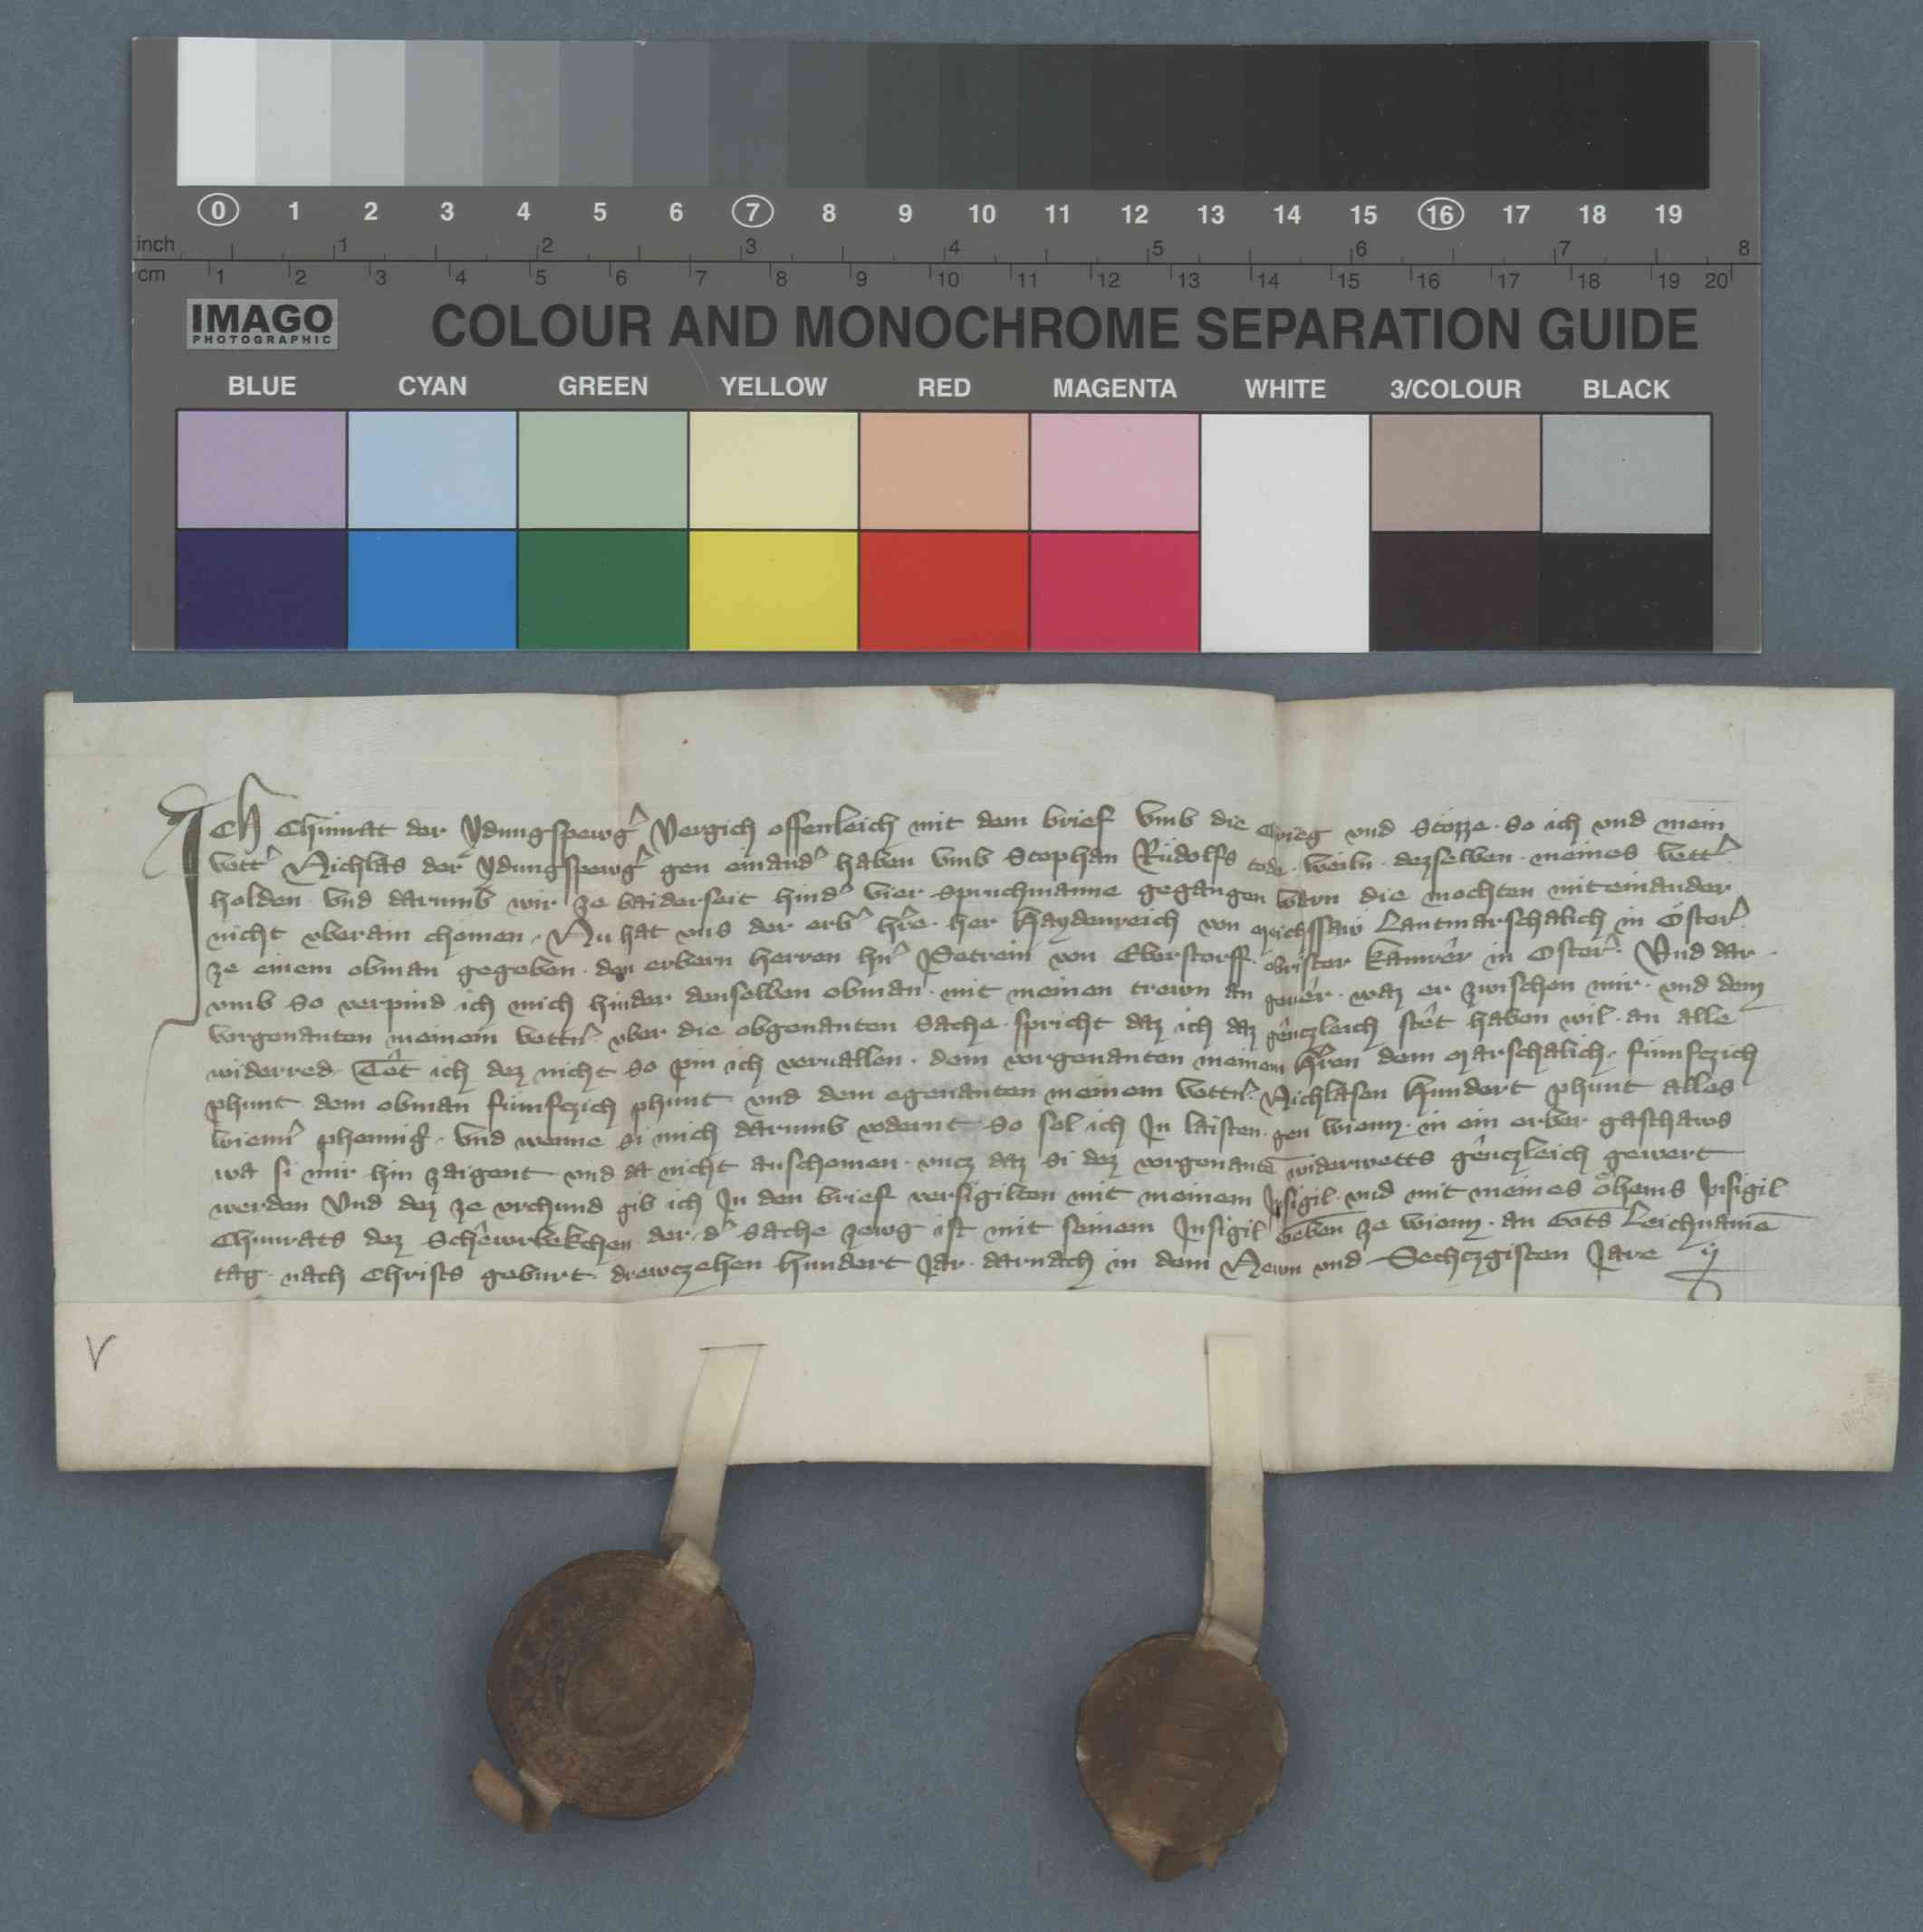 0 1 2 3 4 5 6 7 8 9 10 11 12 13 14 15 16 17 18 19
inch 1 2 3 4 5 6 7 8
cm 1 2 3 4 5 6 7 8 9 10 11 12 13 14 15 16 17 18 19 20
IMAGO
PHOTOGRAPHIC
COLOUR AND MONOCHROME SEPARATION GUIDE
BLUE CYAN GREEN YELLOW RED MAGENTA WHITE 3/COLOUR BLACK
Ich Chunrat der Ydungspewg̉ Vergich offenleich mit dem brief vmb die Chrieg vnd Stozze · so ich vnd mein
vett̉ Nichlas der Ydungspewg̉ gen einand̉ haben vmb Stephan Rudolfs tode · weiln · dezselben · meines vett̉
holden · vnd darumb wir ze baiderseit hind̉ vier Spruchmanne gegangen warn die mochten miteinander
nicht vberain chomen · Nu hat vns der erb̉ h̉re · her Haydenreich von Meichssaw Lantmarschalich in Öster̉
ze einem obman gegeben · den erbern herren hn̉ Petrein von Eberstorff · obrister kamrer in Öster̉ · Vnd dar
vmb so verpind ich mich hinder denselben obman · mit meinen trewn an geuêr · waz er zwischen mir · vnd dem
vorgenanten meinem vettn̉ vber die obgenanten sache · spricht daz ich daz gênczleich stêt haben wil · an alle
widerred Têt ich dez nicht so pin ich veruallen · dem vorgenanten meinem H̉ren dem Marschalich · fumfczich
phunt dem obman fumfczich phunt vnd dem egenanten meinem vettn̉ Nichlasen Hundert phunt alles
wienn̉ phennig̉ · vnd wenne si mich darumb vodernt so sol ich In laisten · gen wienn · in ein erber gasthaws
wa si mir hin zaigent vnd da nicht auschomen · vncz daz si dez vorgenantē widerwetts gênczleich gewert
werden Vnd dez ze vrchund gib ich In den brief versigilten mit meinem Insigil · vnd mit meines öhems Insigil
Chunrats dez Schêwrbekchen der d̉ sache zewg ist mit seinem Insigil Geben ze wienn · an Gots Leichnamē
tag · nach Christs geburt drewczehen Hundert Jar · darnach in dem Newn vnd Sechczgisten Jare
V